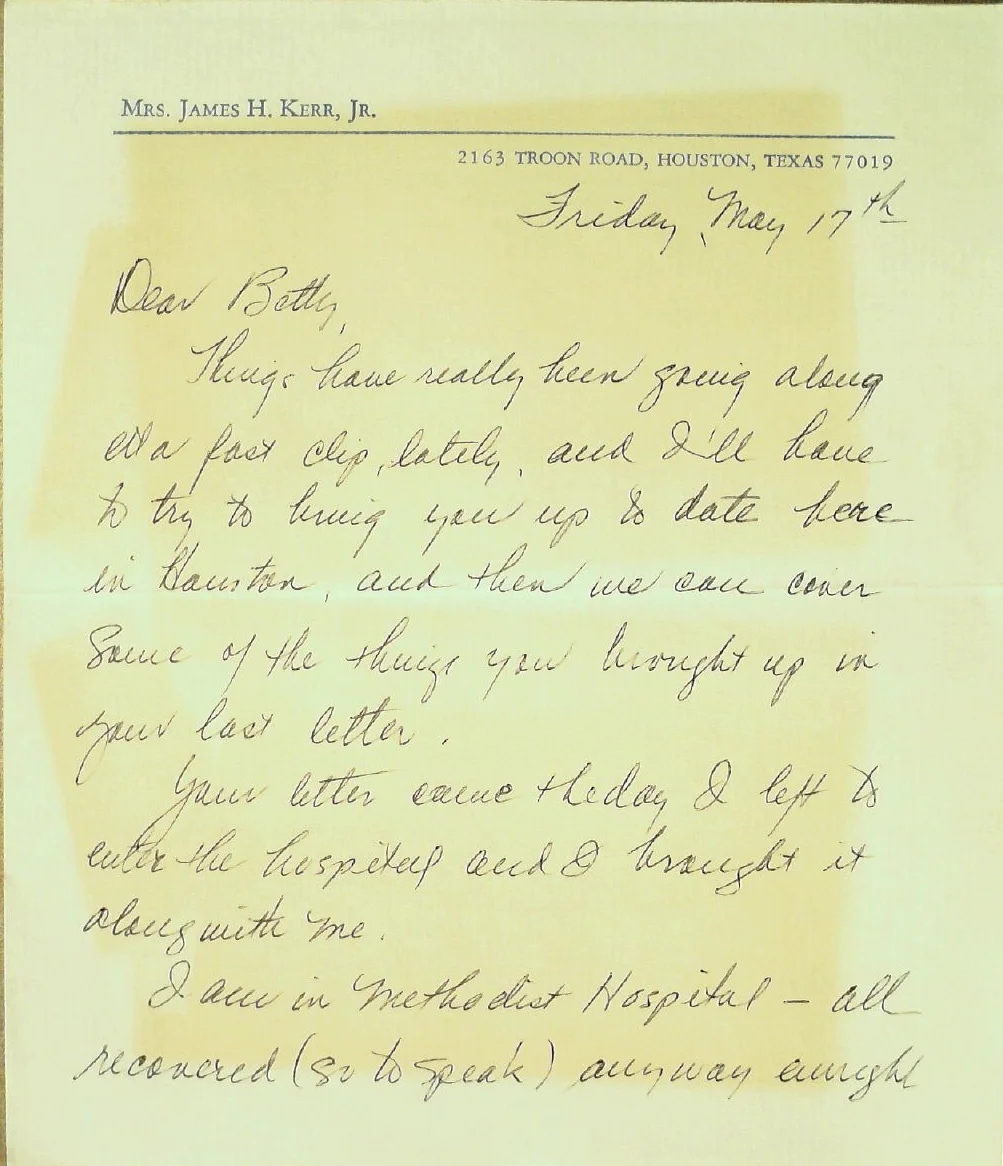 MRS. JAMES H. KERR, JR.
2163 TROON ROAD, HOUSTON, TEXAS 77019
Friday, May 17th
Dear Betty,
Things have really been going along
at a fast clip, lately, and I'll have
to try to bring you up to date here
in Houston, and then we can cover
some of the things you brought up in
your last letter.
Your letter came the day I left to
enter the hospital and I brought it
along with me.
I am in Methodist Hospital – all
recovered (so to speak) anyway